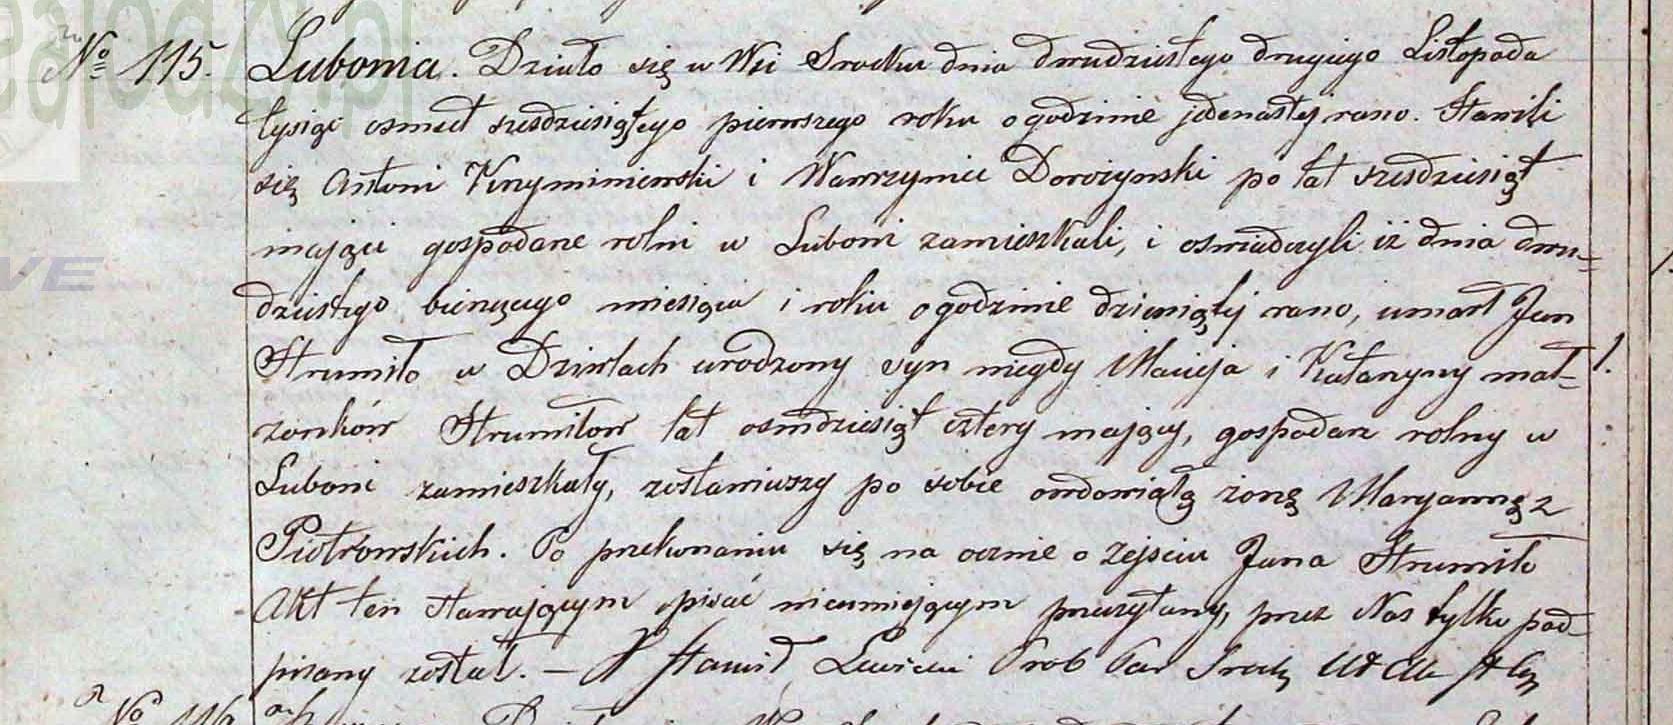 No 115. Lubonia. Działo się w Wsi Srocku dnia dwudziestego drugiego Listopada
tysiąc osmset szesdziesiątego pierwszego roku o godzinie jedenastej rano. Stawili
się Antoni Krzyminiewski i Wawrzyniec Dorożynski po lat szesdziesiąt
mający gospodarze rolni w Luboni zamieszkali, i oswiadczyli iż dnia dwu=
dziestego bierzącego miesiąca i roku o godzinie dziewiątej rano, umarł Jan
Strumiło w Dziwlach urodzony syn niegdy Macieja i Katarzyny mał=
żonków Strumiłow lat osmdziesiąt cztery mający, gospodarz rolny w
Luboni zamieszkały, zostawiwszy po sobie owdowiałą żonę Maryannę z
Piotrowskich. Po przekonaniu się na ocznie o zejsciu Jana Strumiło
Akt ten stawającym pisać nieumiejącym przeczytany, przez Nas tylko pod=
pisany został. — X Stanisł Lewicki Prob Par
No 116
VE